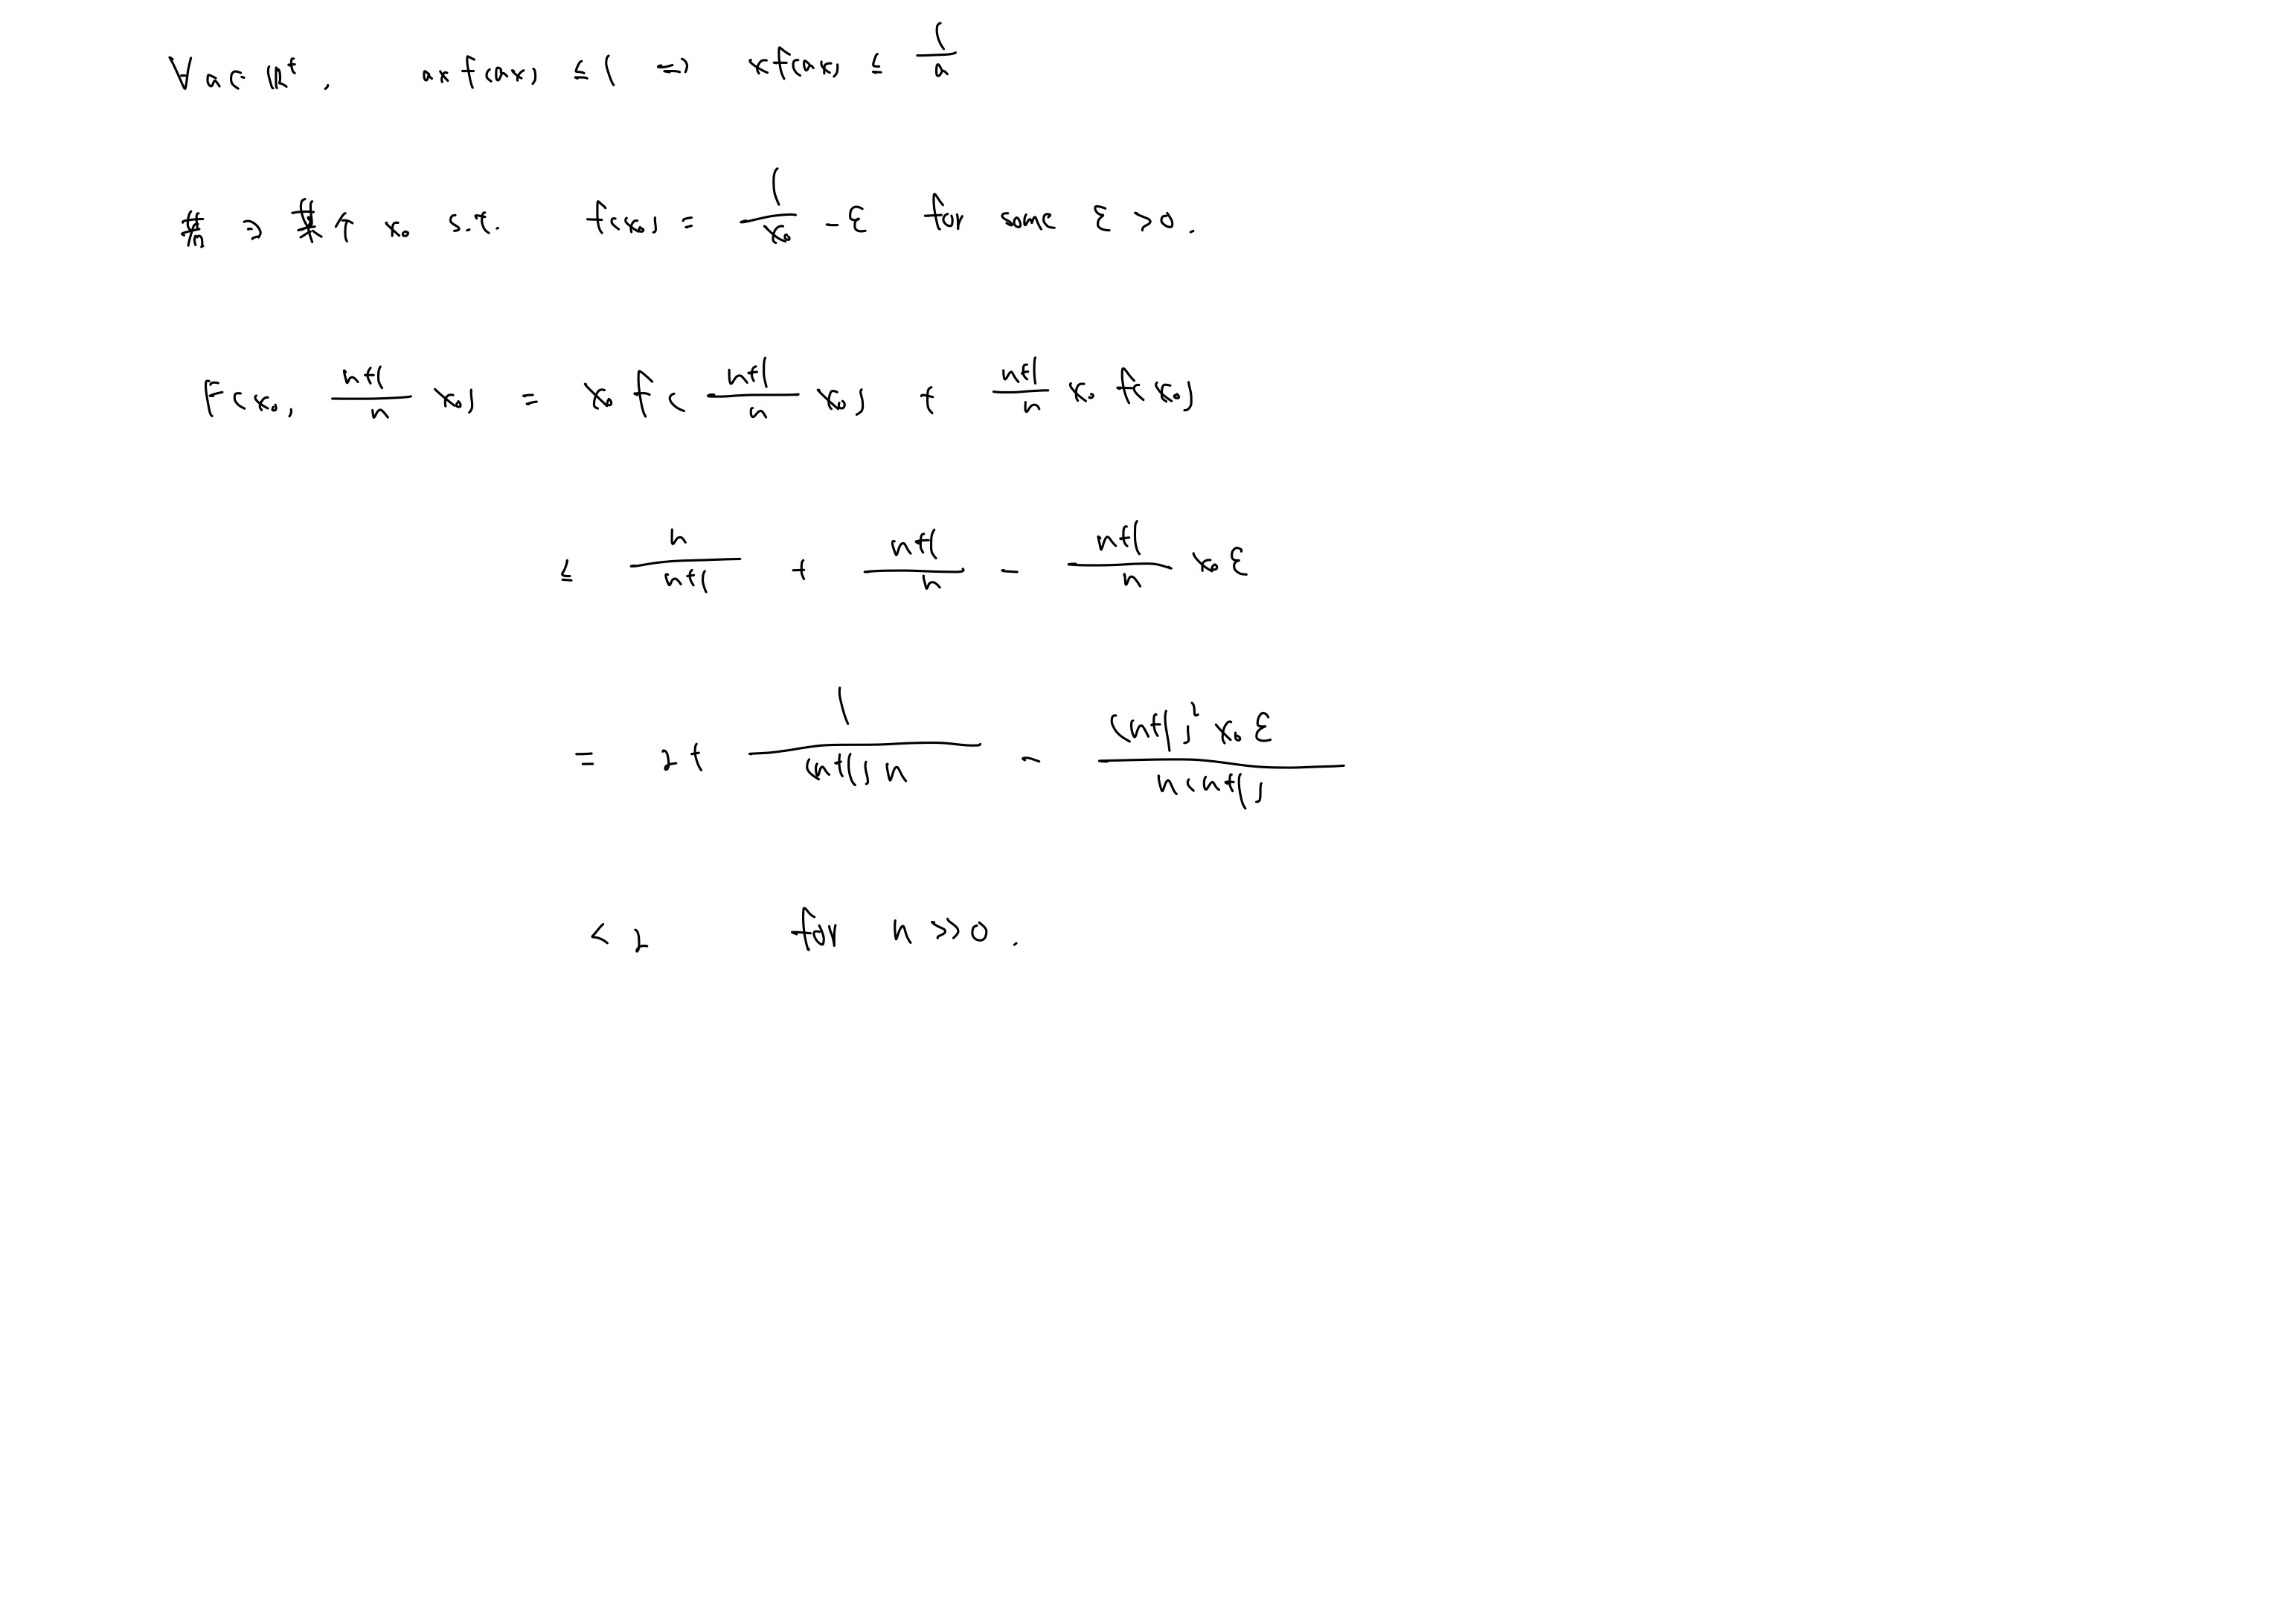 ∀ a ∈ ℝ⁺, ax f(ax) ≤ 1 ⇒ x f(ax) ≤ 1/a
⊃ x₀ s.t. f(x₀) = 1/x₀ - ε for some ε > 0.
F(x₀, (n+1)/n x₀) = x₀ f((n+1)/n x₀) + (n+1)/n x₀ f(x₀)
≤ n/(n+1) + (n+1)/n - (n+1)/n x₀ ε
= 2 + 1/((n+1)n) - (n+1)² x₀ ε/(n(n+1))
< 2 for n >> 0.